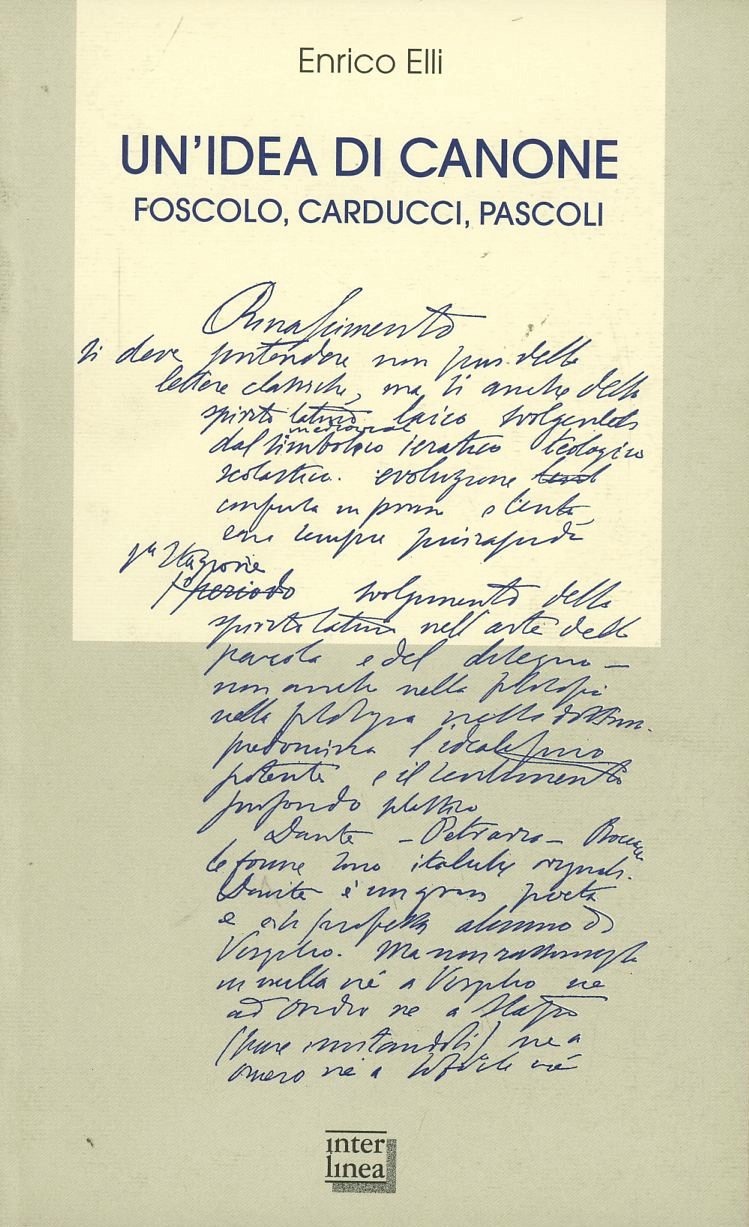 Enrico Elli
UN'IDEA DI CANONE
FOSCOLO, CARDUCCI, PASCOLI
Rinascimento
Si deve intendere non pur delle
lettere classiche, ma si anche dello
spirito latino laico svolgentesi
medioevale
dal simbolico ieratico teologico
scolastico. evoluzione
confusa in prima e lenta,
ma sempre più rapida
1ª Stagione
1º periodo svolgimento dello
spirito latino nell'arte della
parola e del disegno —
non anche nella filosofia
nella
predomina l'ideale fino
potente e il sentimento
profondo plastico
Dante — Petrarca —
le forme sono italiche
Dante è un gran poeta
e alunno di
Virgilio. Ma non
in nulla né a Virgilio né
ad Ovidio né a Stazio
(pure imitandoli) né a
Omero né a né
inter
linea